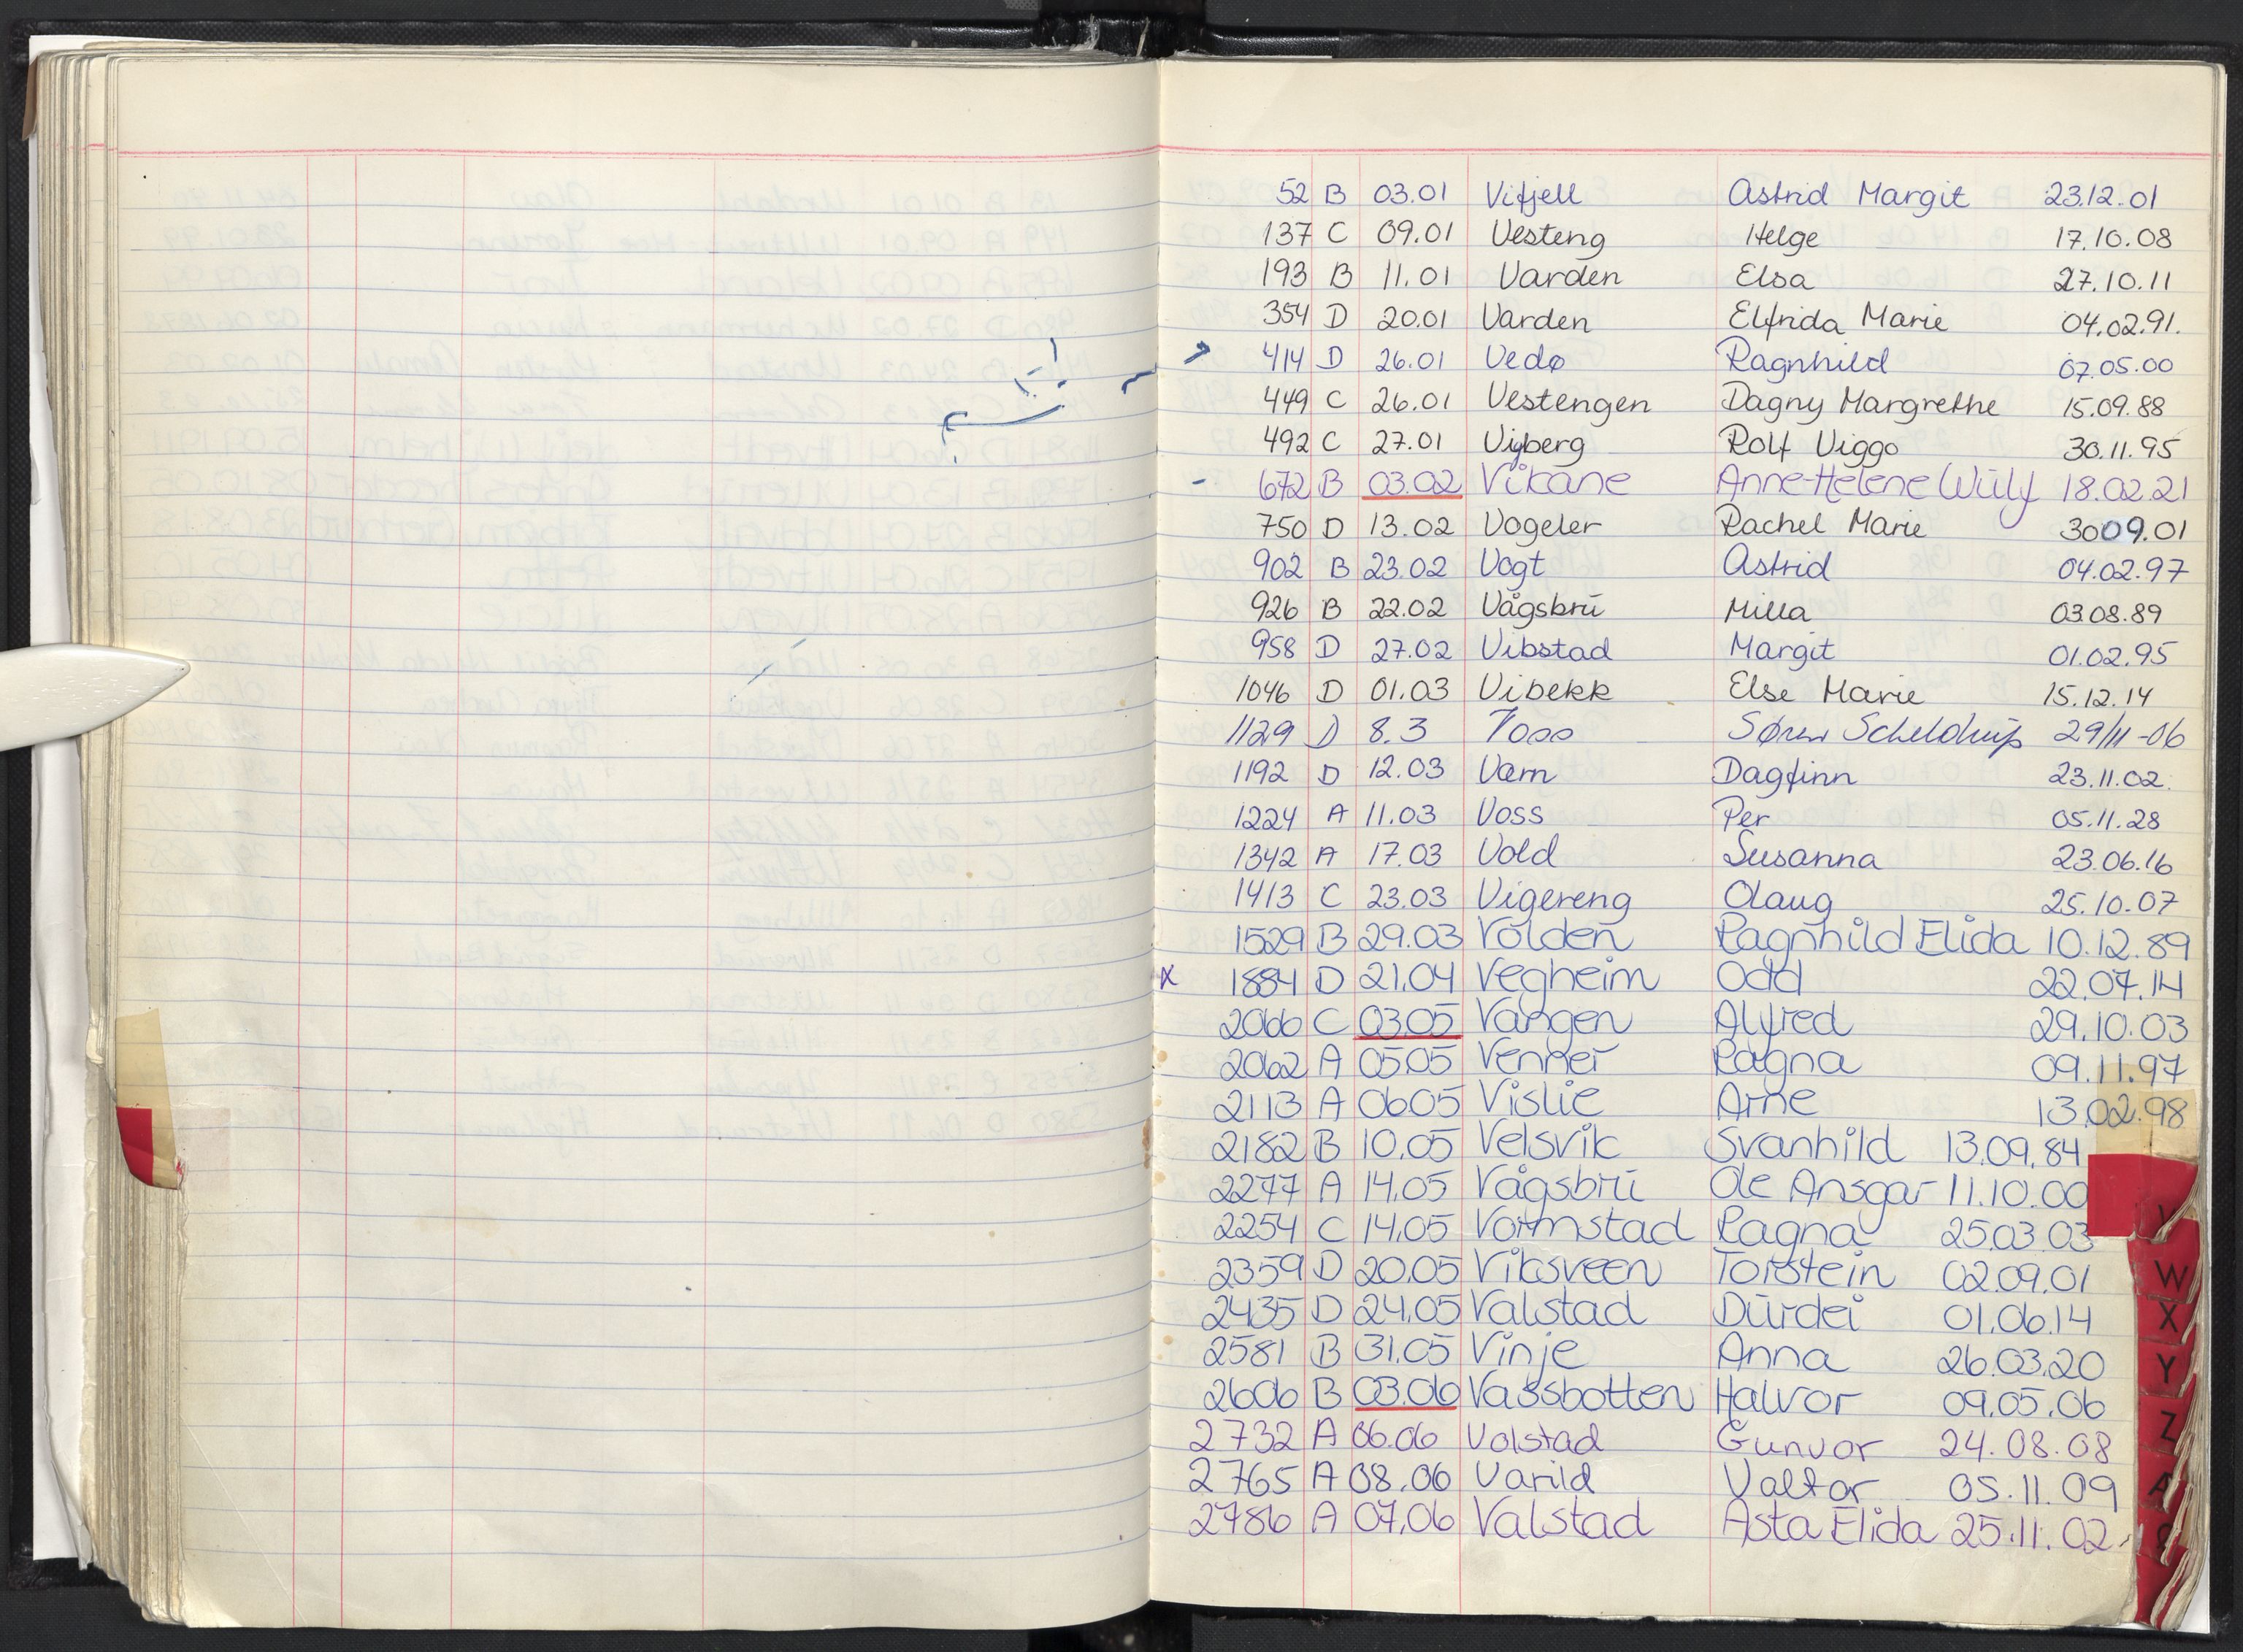 52 B 03.01 Vifjell Astrid Margit 23.12.01
137 C 09.01 Vesteng Helge 17.10.08
193 B 11.01 Varden Elsa 27.10.11
354 D 20.01 Varden Elfrida Marie 04.02.91.
414 D 26.01 Vedø Ragnhild 07.05.00
449 C 26.01 Vestengen Dagny Margrethe 15.09.88
492 C 27.01 Vigberg Rolf Viggo 30.11.95
- 672 B 03.02 Vikane Anne-Helene Wülf 18.02.21
750 D 13.02 Vogeler Rachel Marie 3009.01
902 B 23.02 Vogt Astrid 04.02.97
926 B 22.02 Vågsbrū Milla 03.08.89
958 D 27.02 Vibstad Margit 01.02.95
1046 D 01.03 Vibekk Else Marie 15.12.14
1129 D 8.3 Voss Søren Scheldrup 29/11-06
1192 D 12.03 Værn Dagfinn 23.11.02.
1224 A 11.03 Voss Per 05.11.28
1342 A 17.03 Vold Susanna 23.06.16
1413 C 23.03 Vigereng Olaug 25.10.07
1529 B 29.03 Volden Ragnhild Elida 10.12.89
x 1884 D 21.04 Vegheim Odd 22.07.14
2066 C 03.05 Vangen Alfred 29.10.03
2062 A 05.05 Venner Ragna 09.11.97
2113 A 06.05 Vislie Arne 13.02.98
2182 B 10.05 Velsvik Svanhild 13.09.84
2277 A 14.05 Vågsbrū Ole Ansgar 11.10.00
2254 C 14.05 Vormstad Ragna 25.03.03
2359 D 20.05 Viksveen Torstein 02.09.01
2435 D 24.05 Valstad Dūrdei 01.06.14
2581 B 31.05 Vinje Anna 26.03.20
2606 B 03.06 Vassbotten Halvor 09.05.06
2732 A 06.06 Volstad Gunvor 24.08.08
2765 A 08.06 Varild Valtor 05.11.09
2786 A 07.06 Valstad Asta Elida 25.11.02.
V
W
X
Y
Z